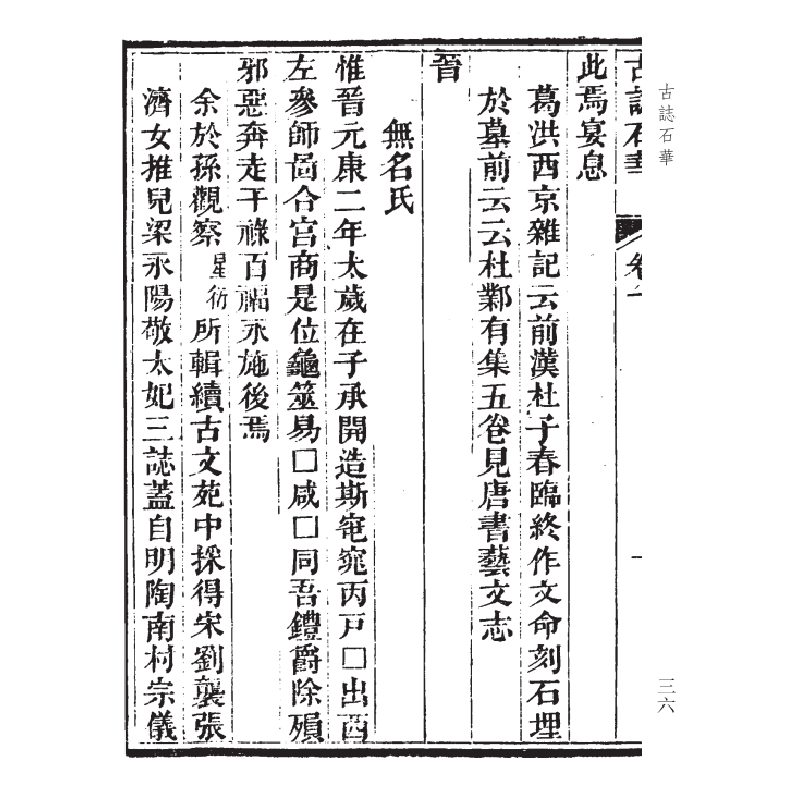 古誌石華
三六
古誌石華 卷一 一
此焉宴息
葛洪西京雜記云前漢杜子春臨終作文命刻石埋
於墓前云云杜鄴有集五卷見唐書藝文志
晉
無名氏
惟晉元康二年太歲在子承開造斯窀窕丙戸□出西
左參師啚合宮商是位龜筮易□咸□同吾鑪爵除殞
邪惡奔走干祿百福永施後焉
余於孫觀察星衍所輯續古文苑中採得宋劉襲張
濟女推兒梁永陽敬太妃三誌蓋自明陶南村宗儀